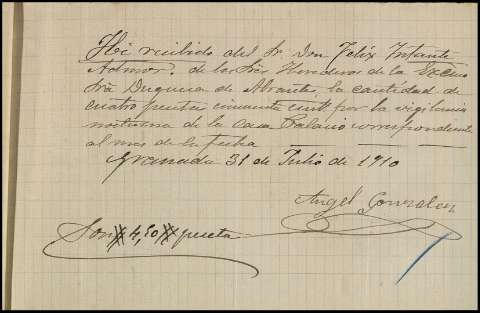 He recibido del Sr. Don Felix Infante
Admor. de los Srs. Herederos de la Excma
Sra Duquesa de Abrantes, la cantidad de
cuatro pesetas cincuenta cents por la vigilancia
nocturna de la casa Palacio correspondiente
al mes de la fecha
Granada 31 de Julio de 1910
Angel Gonzalez
Son 4,50 peseta